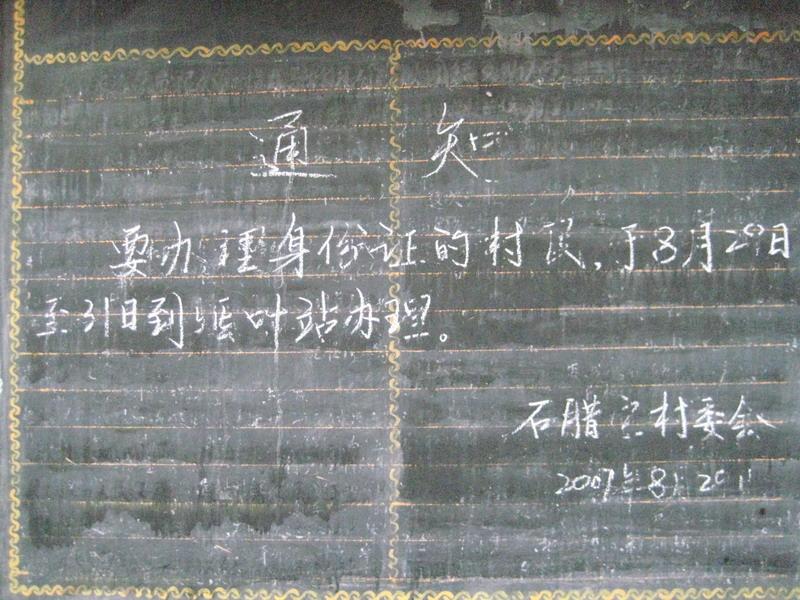 通 知
要办理身份证的村民,于8月29日
至31日到烟叶站办理。
石腊 村委会
2007年8月